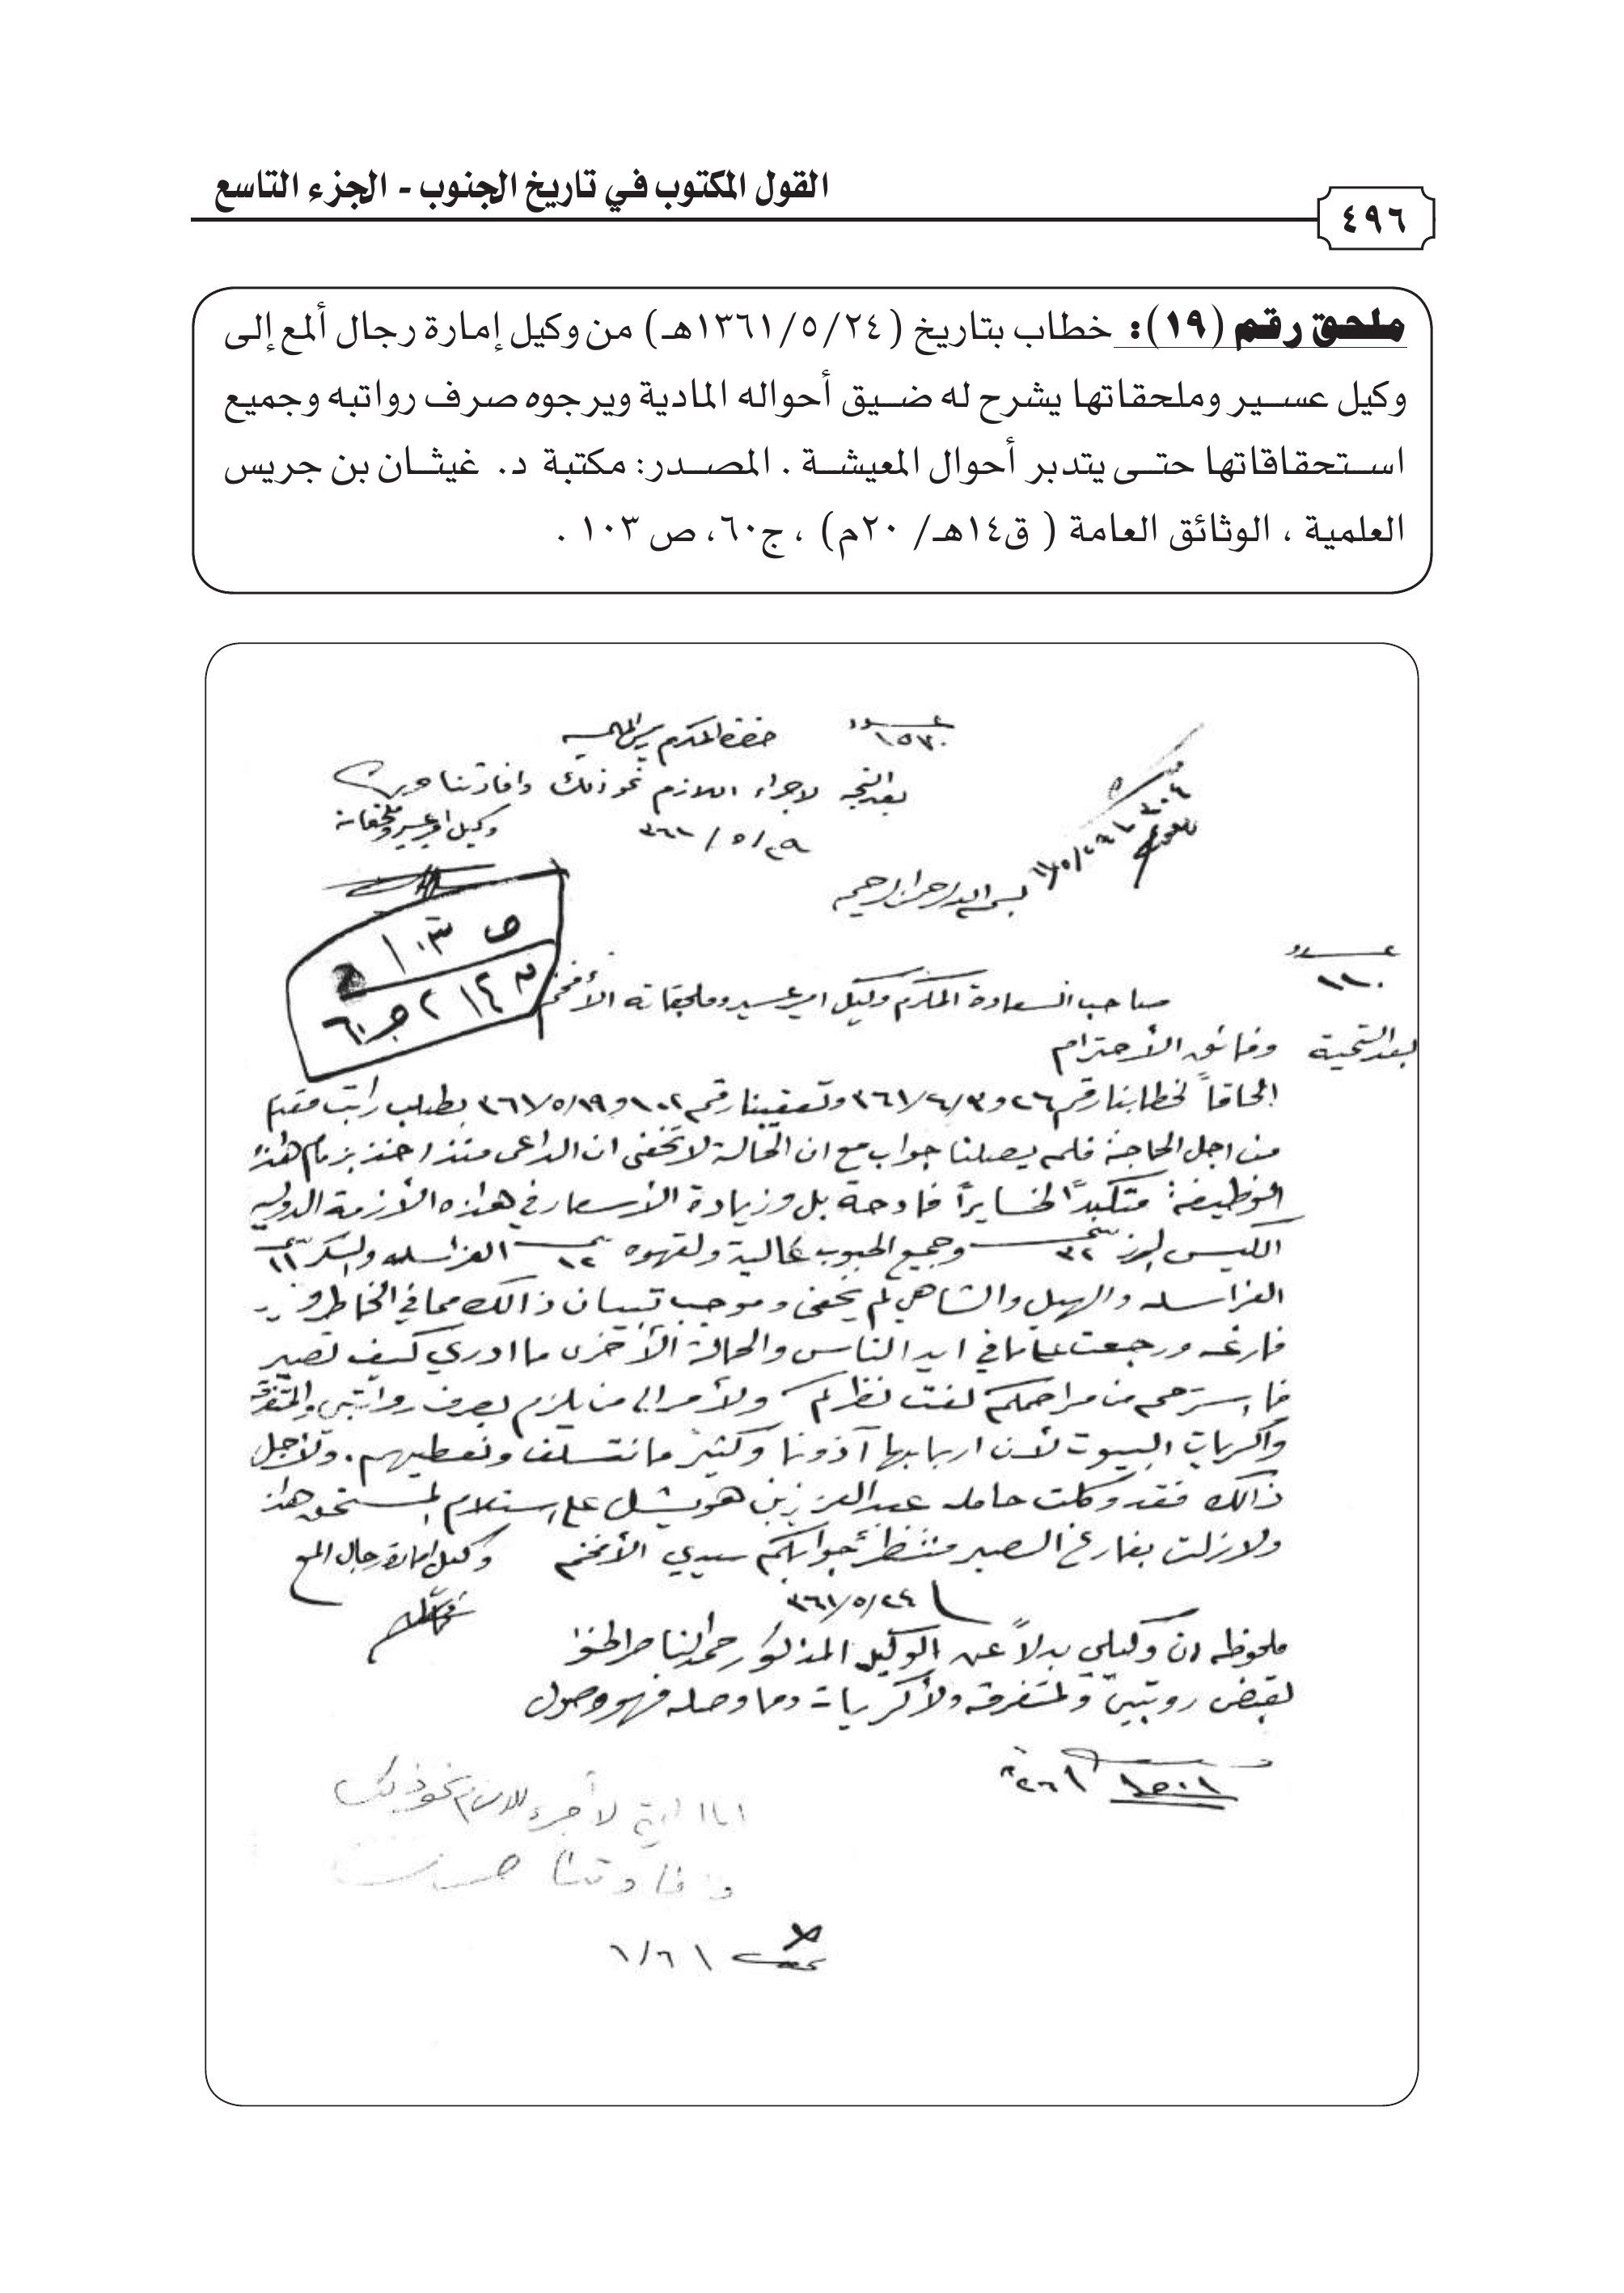 القول المكتوب في تاريخ الجنوب - الجزء التاسع
٤٩٦
ملحق رقم (١٩): خطاب بتاريخ (١٣٦١/٥/٢٤هـ) من وكيل إمارة رجال ألمع إلى
وكيل عسير وملحقاتها يشرح له ضيق أحواله المادية ويرجوه صرف رواتبه وجميع
استحقاقاتها حتى يتدبر أحوال المعيشة . المصدر: مكتبة د. غيثان بن جريس
العلمية ، الوثائق العامة ( ق١٤هـ/ ٢٠م) ، ج٦٠، ص ١٠٣ .
عدد
١٥٣٠
حضرة المكرم رئيس المالية
بعد التحية لاجراء اللازم نحو ذلك وافادتنا
وكيل امير عسير وملحقاته
٣٦١/٥/٢٩
بسم الله الرحمن الرحيم
ص ١٠٣
عدد
١١٠
صاحب السعادة المكرم وكيل امير عسير وملحقاته الأفخم
بعد التحية وفائق الأحترام
الحاقاً لخطابنا رقم ٢٦ و ٣٦١/٤/٣ وتعقيبنا رقم ١٠٢ و ٣٦١/٥/١٩ بطلب راتب
من اجل الحاجة فلم يصلنا جواب مع ان الحالة لا تخفى ان الداعى منذ اخذ بزمام هذا
الوظيفة متكبداً لخسايراً فادحة بل وزيادة الأسعار في هذه الأزمة الدولية
الكيس الرز ٣٢ وجميع الحبوب غالية ولقهوه ١٢ الفراسله والسكر ١١
الفراسله والهيل والشاهي لم يخفى وموجب تبيان ذالك مما في الخاطر
فارغه ورجعت علينا في ايد الناس والحالة الأخرى ما ادري كيف تصير
فا استرحم من مراحمكم لفت نظركم ولأمر الى من يلزم بصرف رواتبي والمتفرقه
واكريات البيوت لأن اربابها آذونا وكثير ما نتسلف ونعطيهم. ولأجل
ذالك فقد وكلت حامله عبد العزيز بن هويشل على استلام المستحق هذا
ولازلت بفارغ الصبر منتظر جوابكم سيدي الأفخم وكيل امارة رجال المع
٣٦١/٥/٢٤
ملحوظه ان وكيلي بدلاً عن الوكيل المذكور حمد الناصر
لقبض روتبي ولمتفرقه ولأكريات وما وصله فهو وصول
١٥٠١